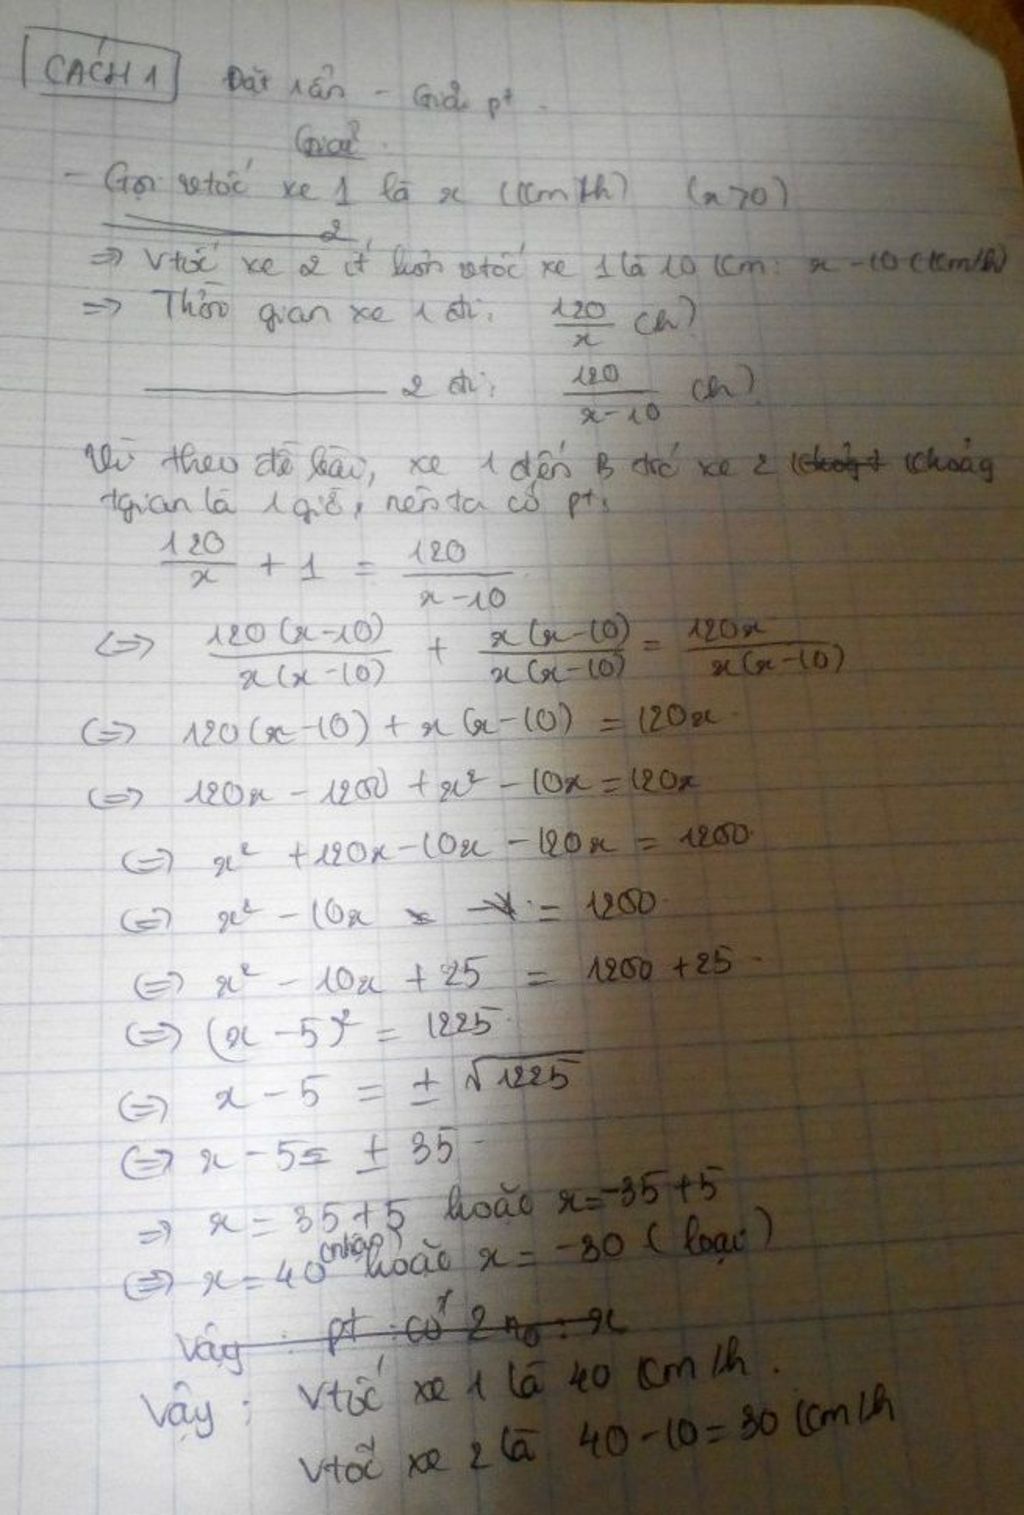 CÁCH 1 Đặt 1 ẩn - Giải pt.
Giải.
- Gọi vtốc xe 1 là x (km/h) (x>0)
2
=> Vtốc xe 2 ít hơn vtốc xe 1 là 10 km: x - 10 (km/h)
=> Thời gian xe 1 đi: 120/x (h)
2 đi: 120/(x-10) (h)
Vì theo đề bài, xe 1 đến B trc xe 2 khoảg
tgian là 1 giờ, nên ta có pt:
120/x + 1 = 120/(x-10)
<=> 120(x-10)/x(x-10) + x(x-10)/x(x-10) = 120x/x(x-10)
<=> 120(x-10) + x(x-10) = 120x
<=> 120x - 1200 + x² - 10x = 120x
<=> x² + 120x - 10x - 120x = 1200
<=> x² - 10x = 1200
<=> x² - 10x + 25 = 1200 + 25
<=> (x - 5)² = 1225
<=> x - 5 = ± √1225
<=> x - 5 = ± 35
=> x = 35 + 5 hoặc x = -35 + 5
<=> x = 40 (nhận) hoặc x = -30 (loại)
Vậy pt có 2 no : x
Vậy : Vtốc xe 1 là 40 km/h.
Vtốc xe 2 là 40 - 10 = 30 km/h